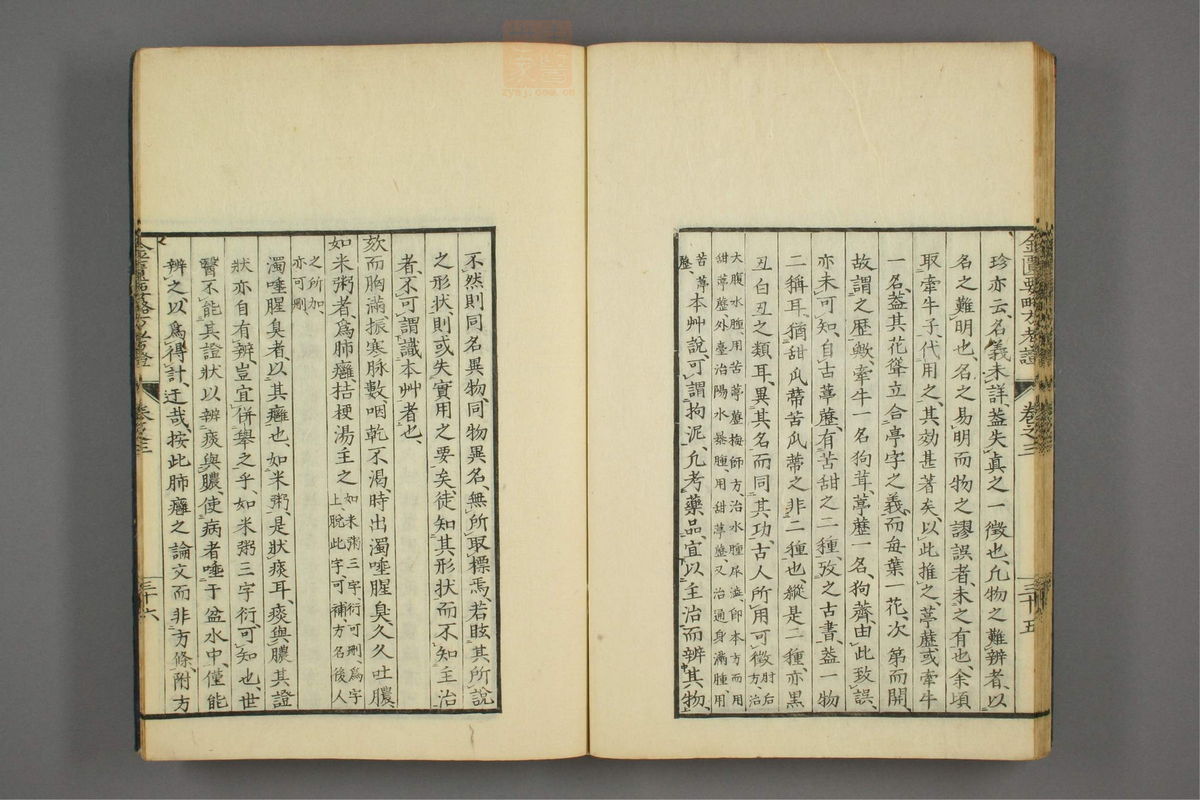 珍亦云、名義未詳、蓋失真之一徵也、凡物之難辨者、以
名之難明也、名之易明而物之謬誤者、未之有也、余頃
取牽牛子、代用之、其効甚著矣、以此推之、葶藶或牽牛
一名、蓋其花聳立合亭字之義、而每葉一花、次第而開、
故謂之歷歟、牽牛一名狗茸、葶藶一名、狗薺、由此致誤、
亦未可知、自古葶藶、有苦甜之二種、攷之古書、蓋一物
二稱耳、猶甜瓜蔕苦瓜蔕之非二種也、縱是二種、亦黑
丑白丑之類耳、異其名而同其功、古人所用可徵肘后方、治
大腹水腫、用苦葶藶梅師方、治水腫尿澁、卽本方而用
甜葶藶、外臺治陽水暴腫、用甜葶藶又治通身滿腫、用
苦葶藶、本艸說、可謂拘泥、凡考藥品、宜以主治而辨其物、
金匱要略方考證
卷之三
三十五
不然則同名異物、同物異名、無所取標焉、若眩其所說
之形狀、則或失實用之要矣、徒知其形狀而不知主治
者、不可謂識本艸者也、
欬而胸滿、振寒脉數、咽乾不渴、時出濁唾腥臭、久久吐膿、
如米粥者、爲肺癰、桔梗湯主之如米粥三字衍可刪、爲字
上、脫此字可補、方名後人
之所加、
亦可刪
濁唾腥臭者、以其癰也、如米粥、是狀痰耳、痰與膿其證
狀亦自有辨、豈宜併舉之乎、如米粥三字衍可知也、世
醫不能其證狀以辨痰與膿、使病者唾于盆水中、僅能
辨之、以爲得計、迂哉、按此肺癰之論文而非方條、附方
金匱要略方考證
卷之三
三十六